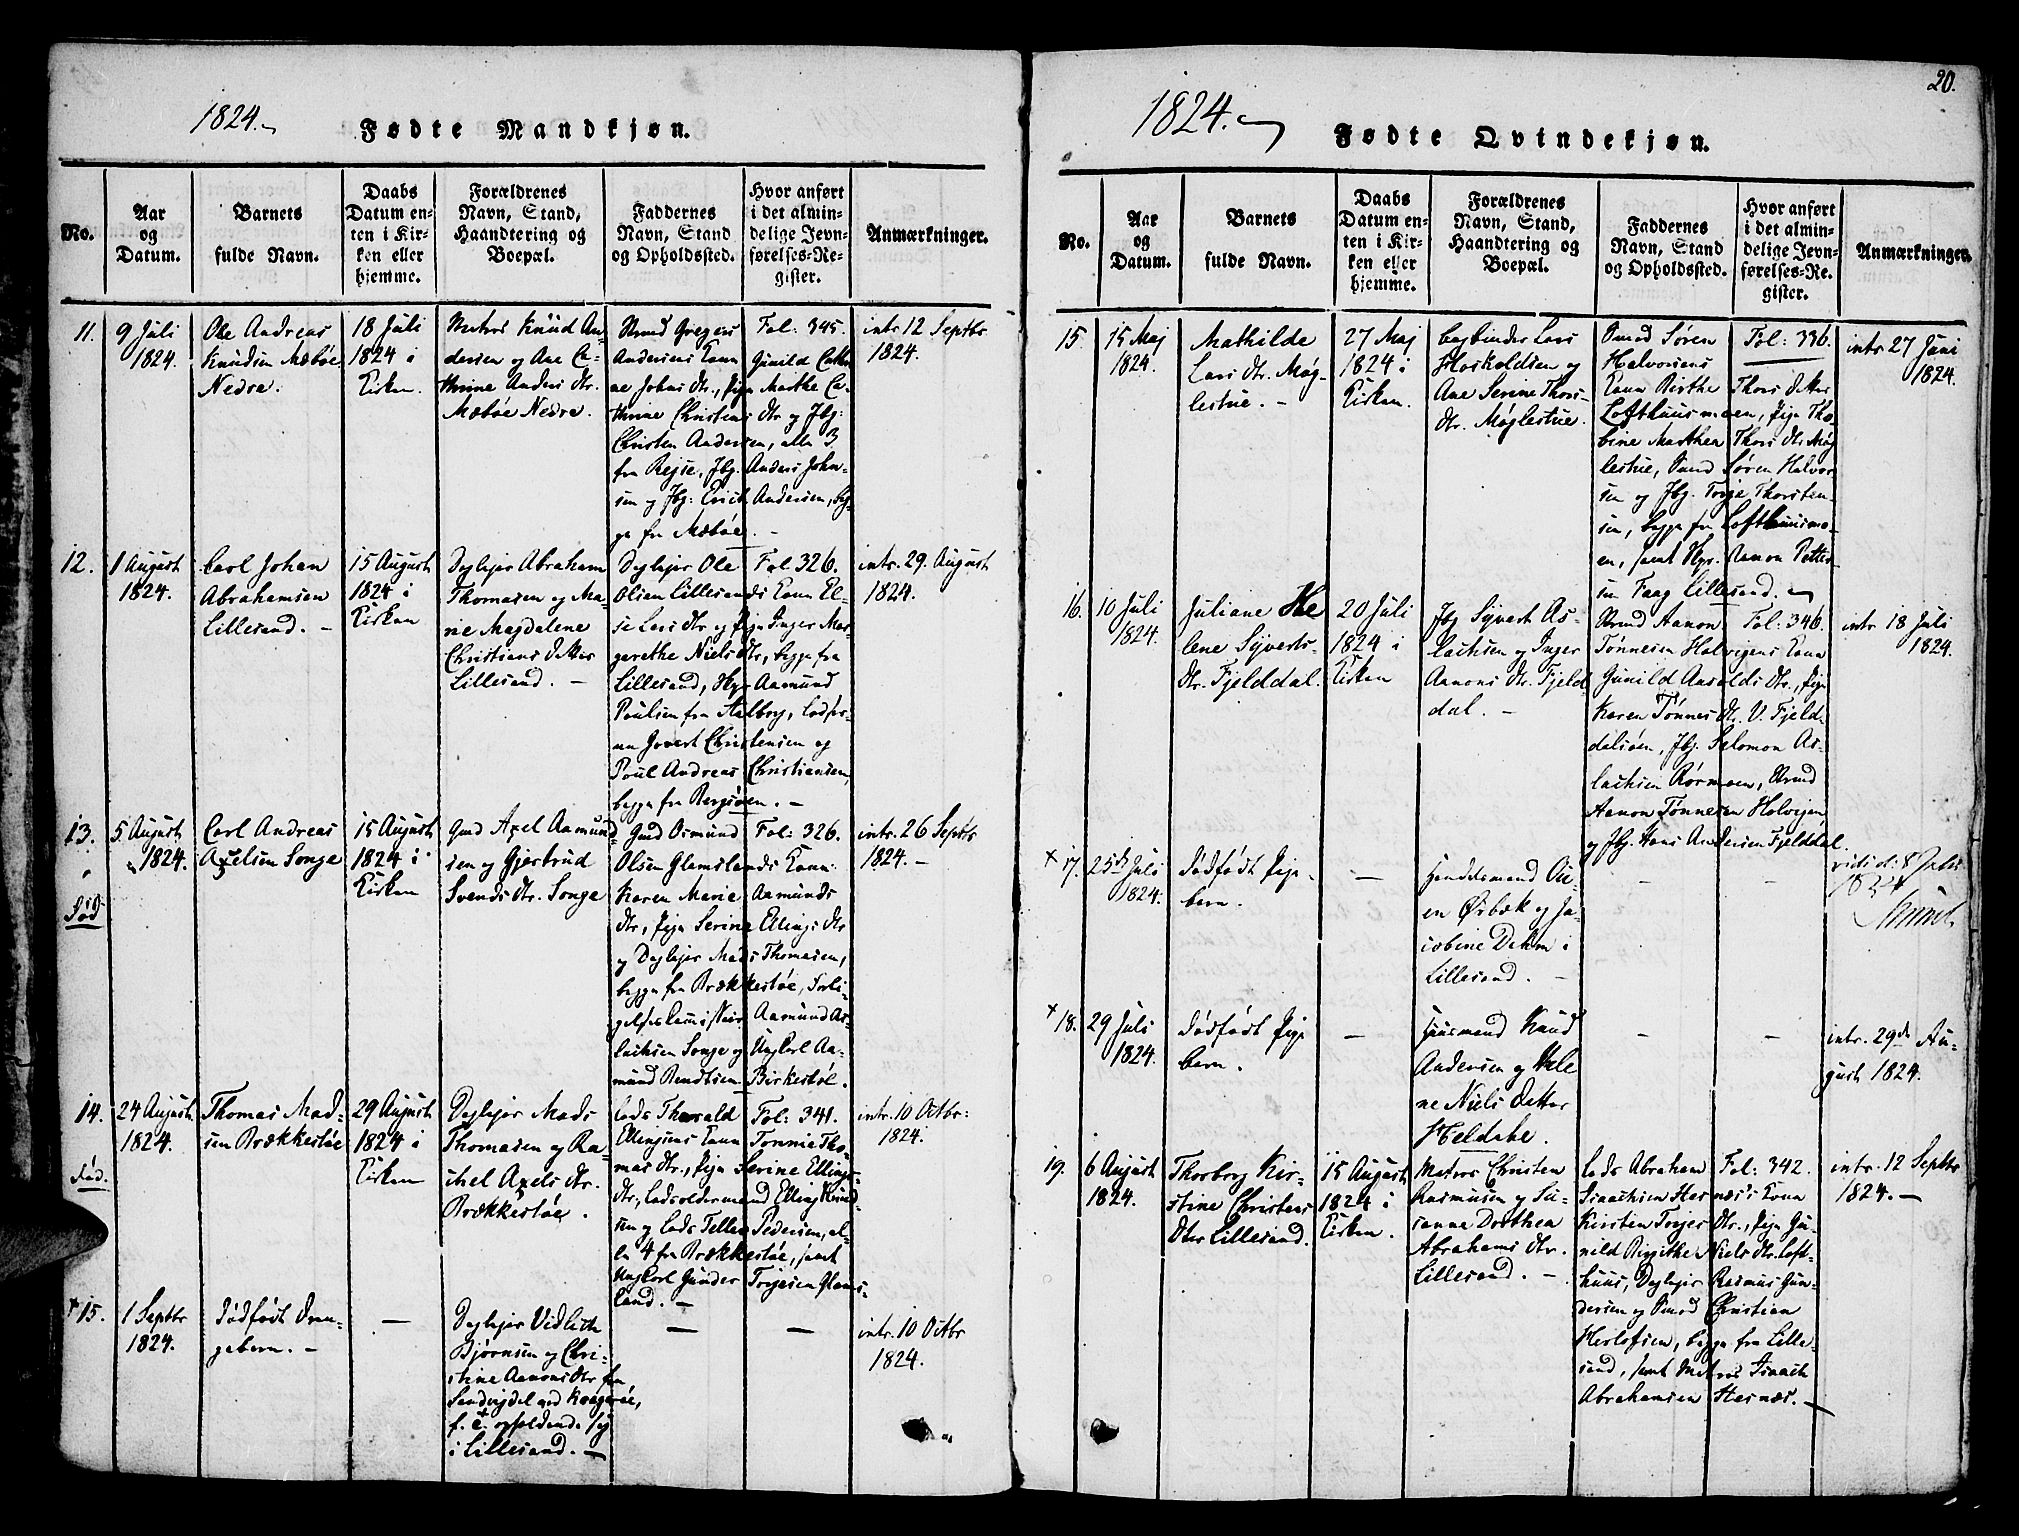 1824.
Fødte Mandkjøn.
No.
Aar
og
Datum.
Barnets
fulde Navn.
Daabs
Datum en-
ten i Kir-
ken eller
hjemme.
Forældrenes
Navn, Stand,
Haandtering og
Boepæl.
Faddernes
Navn, Stand
og Opholdssted.
Hvor anført
i det almin-
delige Jevn-
førelses-Re-
gister.
Anmærkninger.
11.
9 Juli
1824.
Ole Andreas
Knudsen Mæbøe
Nedre.
18 Juli
1824 i
Kirken.
Matros Knud An-
dersen og Ane Ca-
thrine Anders dtr.
Mæbøe Nedre.
Gregers
Andersens Kone
Gunild Cathri-
ne Johns dtr., Pige Marthe Ca-
thrine Christens dtr og Jbg:
Christen Andersen, alle 3
fra Rejse, Jbg. Anders John-
sen og Jbg: Erich Andersen, beg-
ge fra Mæbøe. -
Fol: 345.
intr 12 Septbr
1824.
12.
1 August
1824.
Carl Johan
Abrahamsen
Lillesand. -
15 August
1824 i
Kirken
Dagleier Abraham
Thomasen og Ma-
rie Magdalene
Christians datter
Lillesand. -
Dagleier Ole
Olsen Lillesands Kone El-
se Lars dtr og Pige Inger Mar-
garethe Niels dtr, begge fra
Lillesand, Hyr Aamund
Poulsen fra Aalborg,
Govert Christensen og
Poul Andreas Christiansen,
begge fra Bergsøen. -
Fol 326.
intr. 29. August
1824.
13.
Død
5 August
1824.
Carl Andreas
Axelsen Songe
15 August
1824 i
Kirken
Gmd Axel Aamund-
sen og Gjertrud
Svends dtr. Songe
Gmd Osmund
Olsen Glamslands Kone
Karen Marie Aamunds
dtr, Pige Serine Ellings dtr
og Dagleier Mads Thomasen,
begge fra Brækkestøe,
Aamund As-
lachsen Songe og Ungkarl Aa-
mund Bendtsen Birkestøl.
Fol: 326.
intr. 26 Septbr
1824. -
14.
Død.
24 August
1824.
Thomas Mad-
sen Brækkestøe
29 August
1824 i
Kirken
Dagleier Mads
Thomasen og Ra-
chel Axels dtr.
Brækkestøe.
Lods Thorvald
Ellingsens Kone Tonnie Tho-
mas dtr., Pige Serine Ellings-
dtr, Lodsoldermand Elling Knud
sen og Lods Tellef Pedersen, al-
le 4 fra Brækkestøe, samt
Ungkarl Gunder Torjesen Glams-
land. -
Fol: 341.
intr. 10 Octbr:
1824.
+ 15.
1 Septbr
1824.
Dødfødt Dren-
gebarn. -
-
Dagleier Vidlith
Bjørnsen og Chri-
stine Aanons dtr fra
Sandvigdal ved Kragerøe,
f. t. opholdende sig
i Lillesand. -
-
-
intr. 10 Octbr
1824.
20.
1824.
Fødte Qvindekjøn.
No.
Aar
og
Datum.
Barnets
fulde Navn.
Daabs
Datum en-
ten i Kir-
ken eller
hjemme.
Forældrenes
Navn, Stand,
Haandtering og
Boepæl.
Faddernes
Navn, Stand
og Opholdssted.
Hvor anført
i det almin-
delige Jevn-
førelses-Re-
gister.
Anmærkninger.
15.
15 Maj
1824.
Mathilde
Lars dtr. Møg-
lestue. -
27 Maj
1824 i
Kirken.
Bogbinder Lars
Hoskoldsen og
Ane Serine Thors-
dtr. Møglestue.
Smed Søren
Halvorsens
Kone Birthe Thors datter
Lofthuusmoen, Pige Tho-
bine Marthea Thors dtr Møg-
lestue, Smed Søren Halvor
sen og Jbg. Torje Thorsten-
sen, begge fra Lofthuusmo-
en, samt Hyr. Aanon Petter-
sen Faag Lillesand.
Fol: 336.
intr 27 Juni
1824.
16.
10 Juli
1824.
Juliane He
lene Syverts-
dtr. Fjelddal.
20 Juli
1824 i
Kirken
Jbg Syvert As-
lachsen og Inger
Aanons dtr. Fjeld
dal. -
Aanon
Tønnesen Holvigens Kone
Gunild Asolds dtr., Pige
Karen Tønnes dtr. V. Fjeld-
dalsøen, Jbg. Salomon As-
lachsen Rørmoen,
Aanon Tønnesen Holvigen
og Jbg. Hans Andersen Fjelddal
Fol: 346.
intr. 18 Juli
1824.
+ 17.
25de Juli
1824.
Dødfødt Pige
barn.
-
Handelsmand Ou-
en Ørbæk og Ja-
cobine Dahm i
Lillesand. -
-
-
+ 18.
29 Juli
1824.
Dødfødt Pige
barn.
-
Huusmand Knud
Andersen og Hele
ne Niels datter
Heldahe.
-
-
intr. 29de Au-
gust 1824.
19.
6 August
1824.
Thorborg Kir-
stine Christens
dtter Lillesand.
15 August
1824 i
Kirken.
Matros Christen
Rasmusen og Su-
sanne Dorthea
Abrahams dtr.
Lillesand. -
Lods Abraham
Isaachsen Hesnæs's Kone
Kirsten Torjes dtr., Pige Gu-
nild Birgithe Niels dtr. Loft-
huus, Dagleier Rasmus Gun-
dersen og Smed Christian
Herlofsen, begge fra Lille-
sand, samt Matros Isaach
Abrahamsen Hesnæs. -
Fol: 342.
intr. 12 Septbr
1824. -